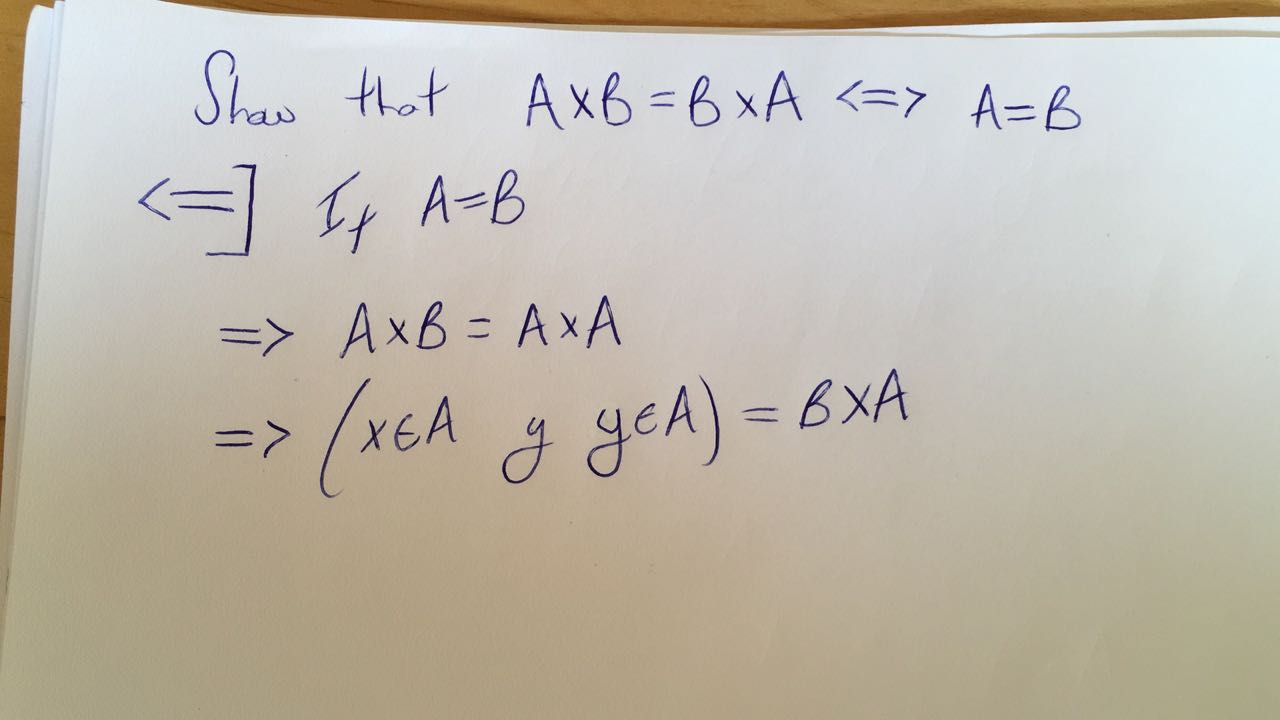 Show that A×B = B×A <=> A=B
<=] If A=B
=> A×B = A×A
=> (x∈A y y∈A) = B×A